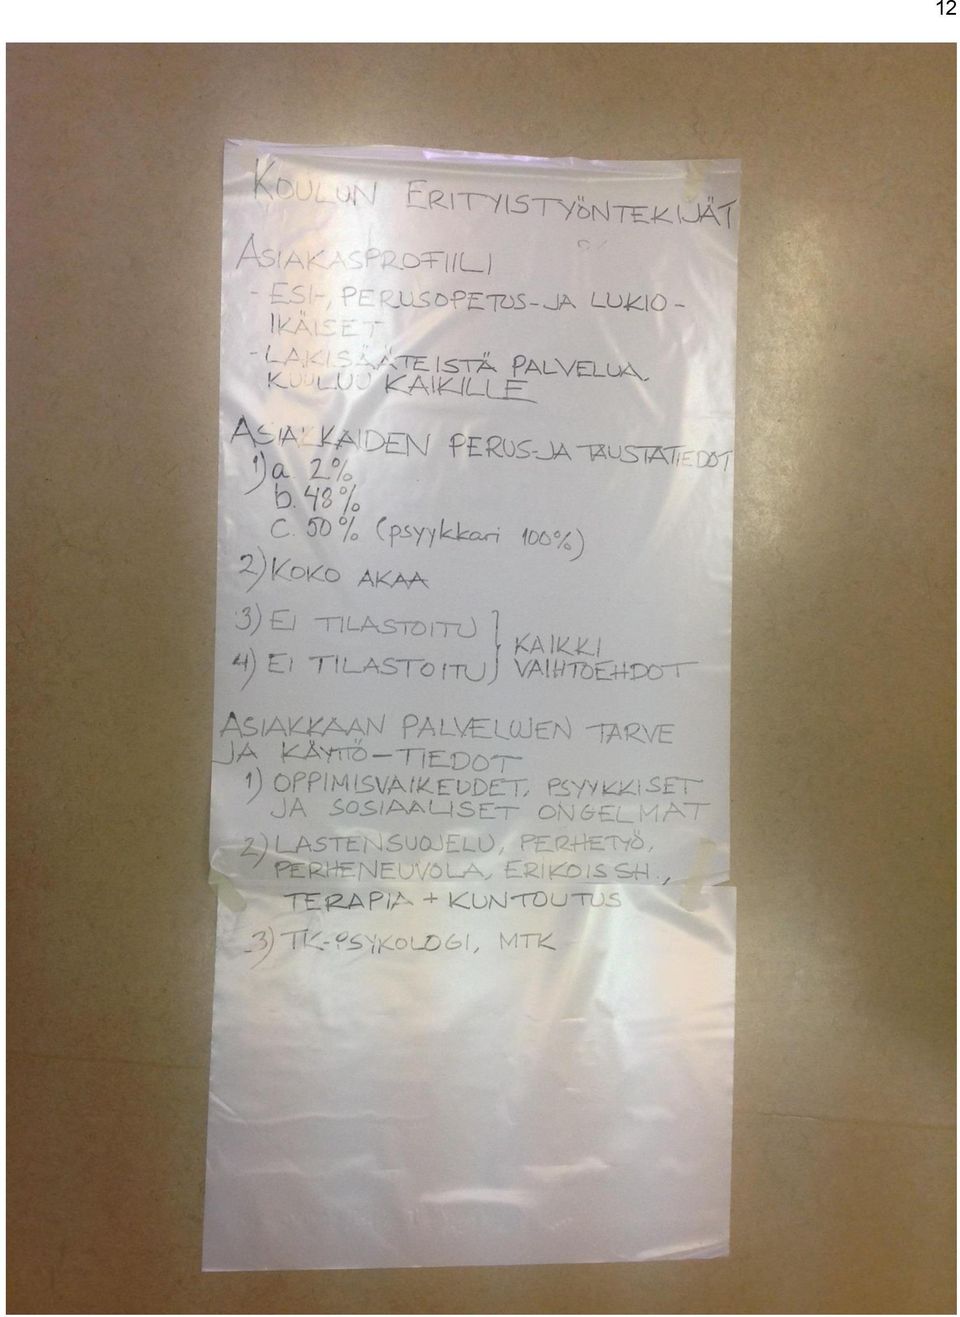 12
KOULUN ERITYISTYÖNTEKIJÄT
ASIAKASPROFIILI
- ESI-, PERUSOPETUS- JA LUKIO -
IKÄISET
- LAKISÄÄTEISTÄ PALVELUA,
KUULUU KAIKILLE
ASIAKKAIDEN PERUS- JA TAUSTATIEDOT
1) a 2%
b. 48%
c. 50% (psyykkari 100%)
2) KOKO AKAA
3) EI TILASTOITU
KAIKKI
4) EI TILASTOITU VAIHTOEHDOT
ASIAKKAAN PALVELUJEN TARVE
JA KÄYTTÖ-TIEDOT
1) OPPIMISVAIKEUDET, PSYYKKISET
JA SOSIAALISET ONGELMAT
2) LASTENSUOJELU, PERHETYÖ,
PERHENEUVOLA, ERIKOIS SH.,
TERAPIA + KUNTOUTUS
3) TK-PSYKOLOGI, MTK